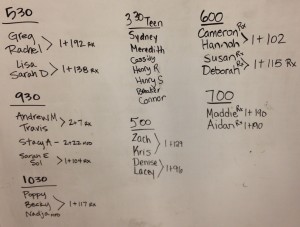 530
Greg
Rachel > 1+192 Rx
Lisa
Sarah D > 1+138 Rx
930
Andrew M
Travis > 2+7 Rx
Stacy A - 2+22
Sarah E
Sol > 1+104 Rx
1030
Poppy
Becky > 1+117 Rx
Nadja
330 Teen
Sydney
Meredith
Cassidy
Henry R
Henry S
Connor
500
Zach
Kris > 1+129
Denise
Lacey > 1+96
600
Cameron Rx
Hannah > 1+102
Susan Rx
Deborah Rx > 1+115 Rx
700
Maddie Rx 1+140
Aidan Rx 1+190